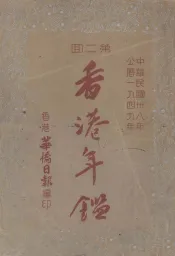 第二回
中華民國卅八年
公曆一九四九年
香港年鑑
香港華僑日報編印